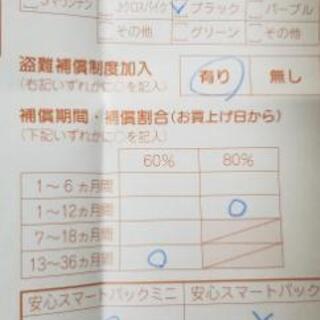 マウンテン クロスバイク ブラック パープル
その他 グリーン その他
盗難補償制度加入 有り 無し
(右記いずれかに○を記入)
補償期間・補償割合(お買上げ日から)
(下記いずれかに○を記入)
60% 80%
1〜6ヵ月間
1〜12ヵ月間 ○
7〜18ヵ月間
13〜36ヵ月間 ○
安心スマートパックミニ 安心スマートパック